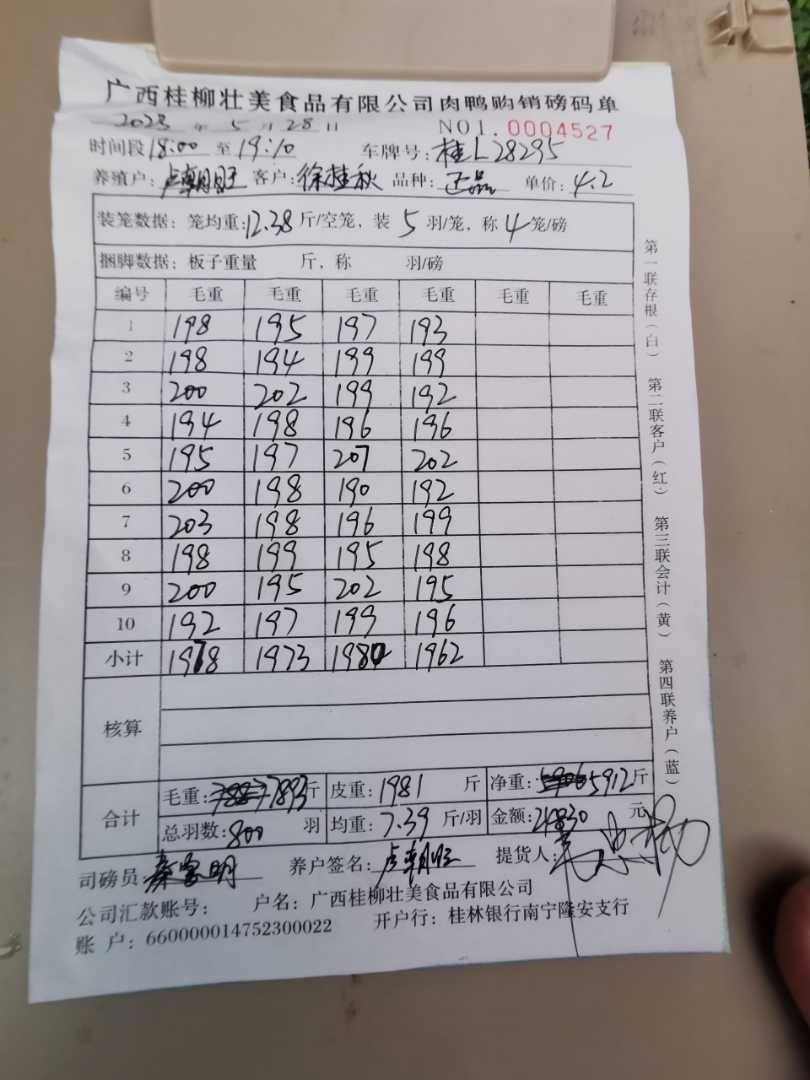 广西桂柳壮美食品有限公司肉鸭购销磅码单
2023 年 5 月 28 日 NO1.0004527
时间段 18:00 至 19:10 车牌号: 桂L28295
养殖户: 卢朝旺 客户: 徐桂秋 品种: 正品 单价: 4.2
装笼数据: 笼均重: 12.38 斤/空笼, 装 5 羽/笼, 称 4 笼/磅
捆脚数据: 板子重量 斤, 称 羽/磅
编号 毛重 毛重 毛重 毛重 毛重 毛重
1 198 195 197 193
2 198 194 199 199
3 200 202 199 192
4 194 198 196 196
5 195 197 207 202
6 200 198 190 192
7 203 198 196 199
8 198 199 195 198
9 200 195 202 195
10 192 197 199 196
小计 1978 1973 1980 1962
核算
合计
毛重: 7893 斤 皮重: 1981 斤 净重: 5912 斤
总羽数: 800 羽 均重: 7.39 斤/羽 金额: 24830 元
司磅员: 养户签名: 卢朝旺 提货人:
公司汇款账号: 户名: 广西桂柳壮美食品有限公司
账 户: 660000014752300022 开户行: 桂林银行南宁隆安支行
第一联存根(白) 第二联客户(红) 第三联会计(黄) 第四联养户(蓝)